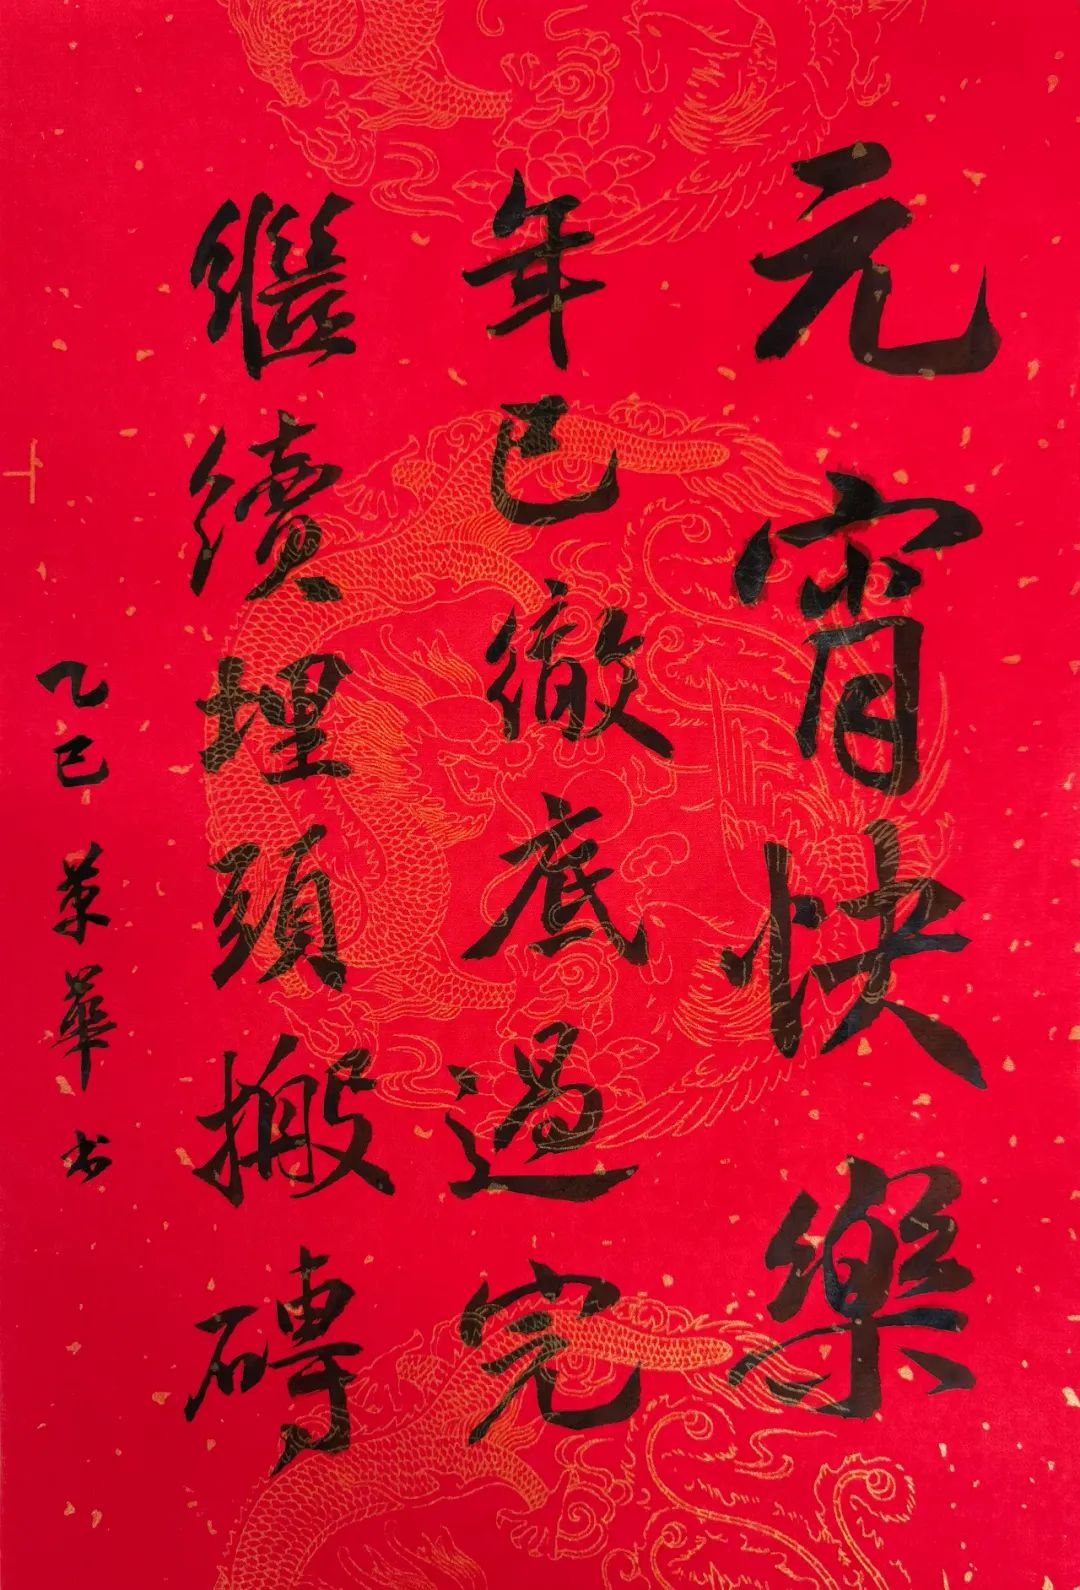 元宵快樂
年已徹底過完
繼續埋頭搬磚
乙巳 革華书